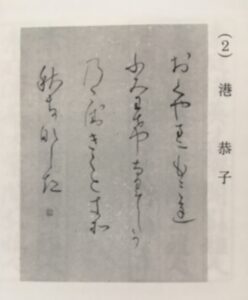 (2) 港 恭子
おくやまにもみち
ふみわけなくしか
のこゑきくときそ
秋はかなしき